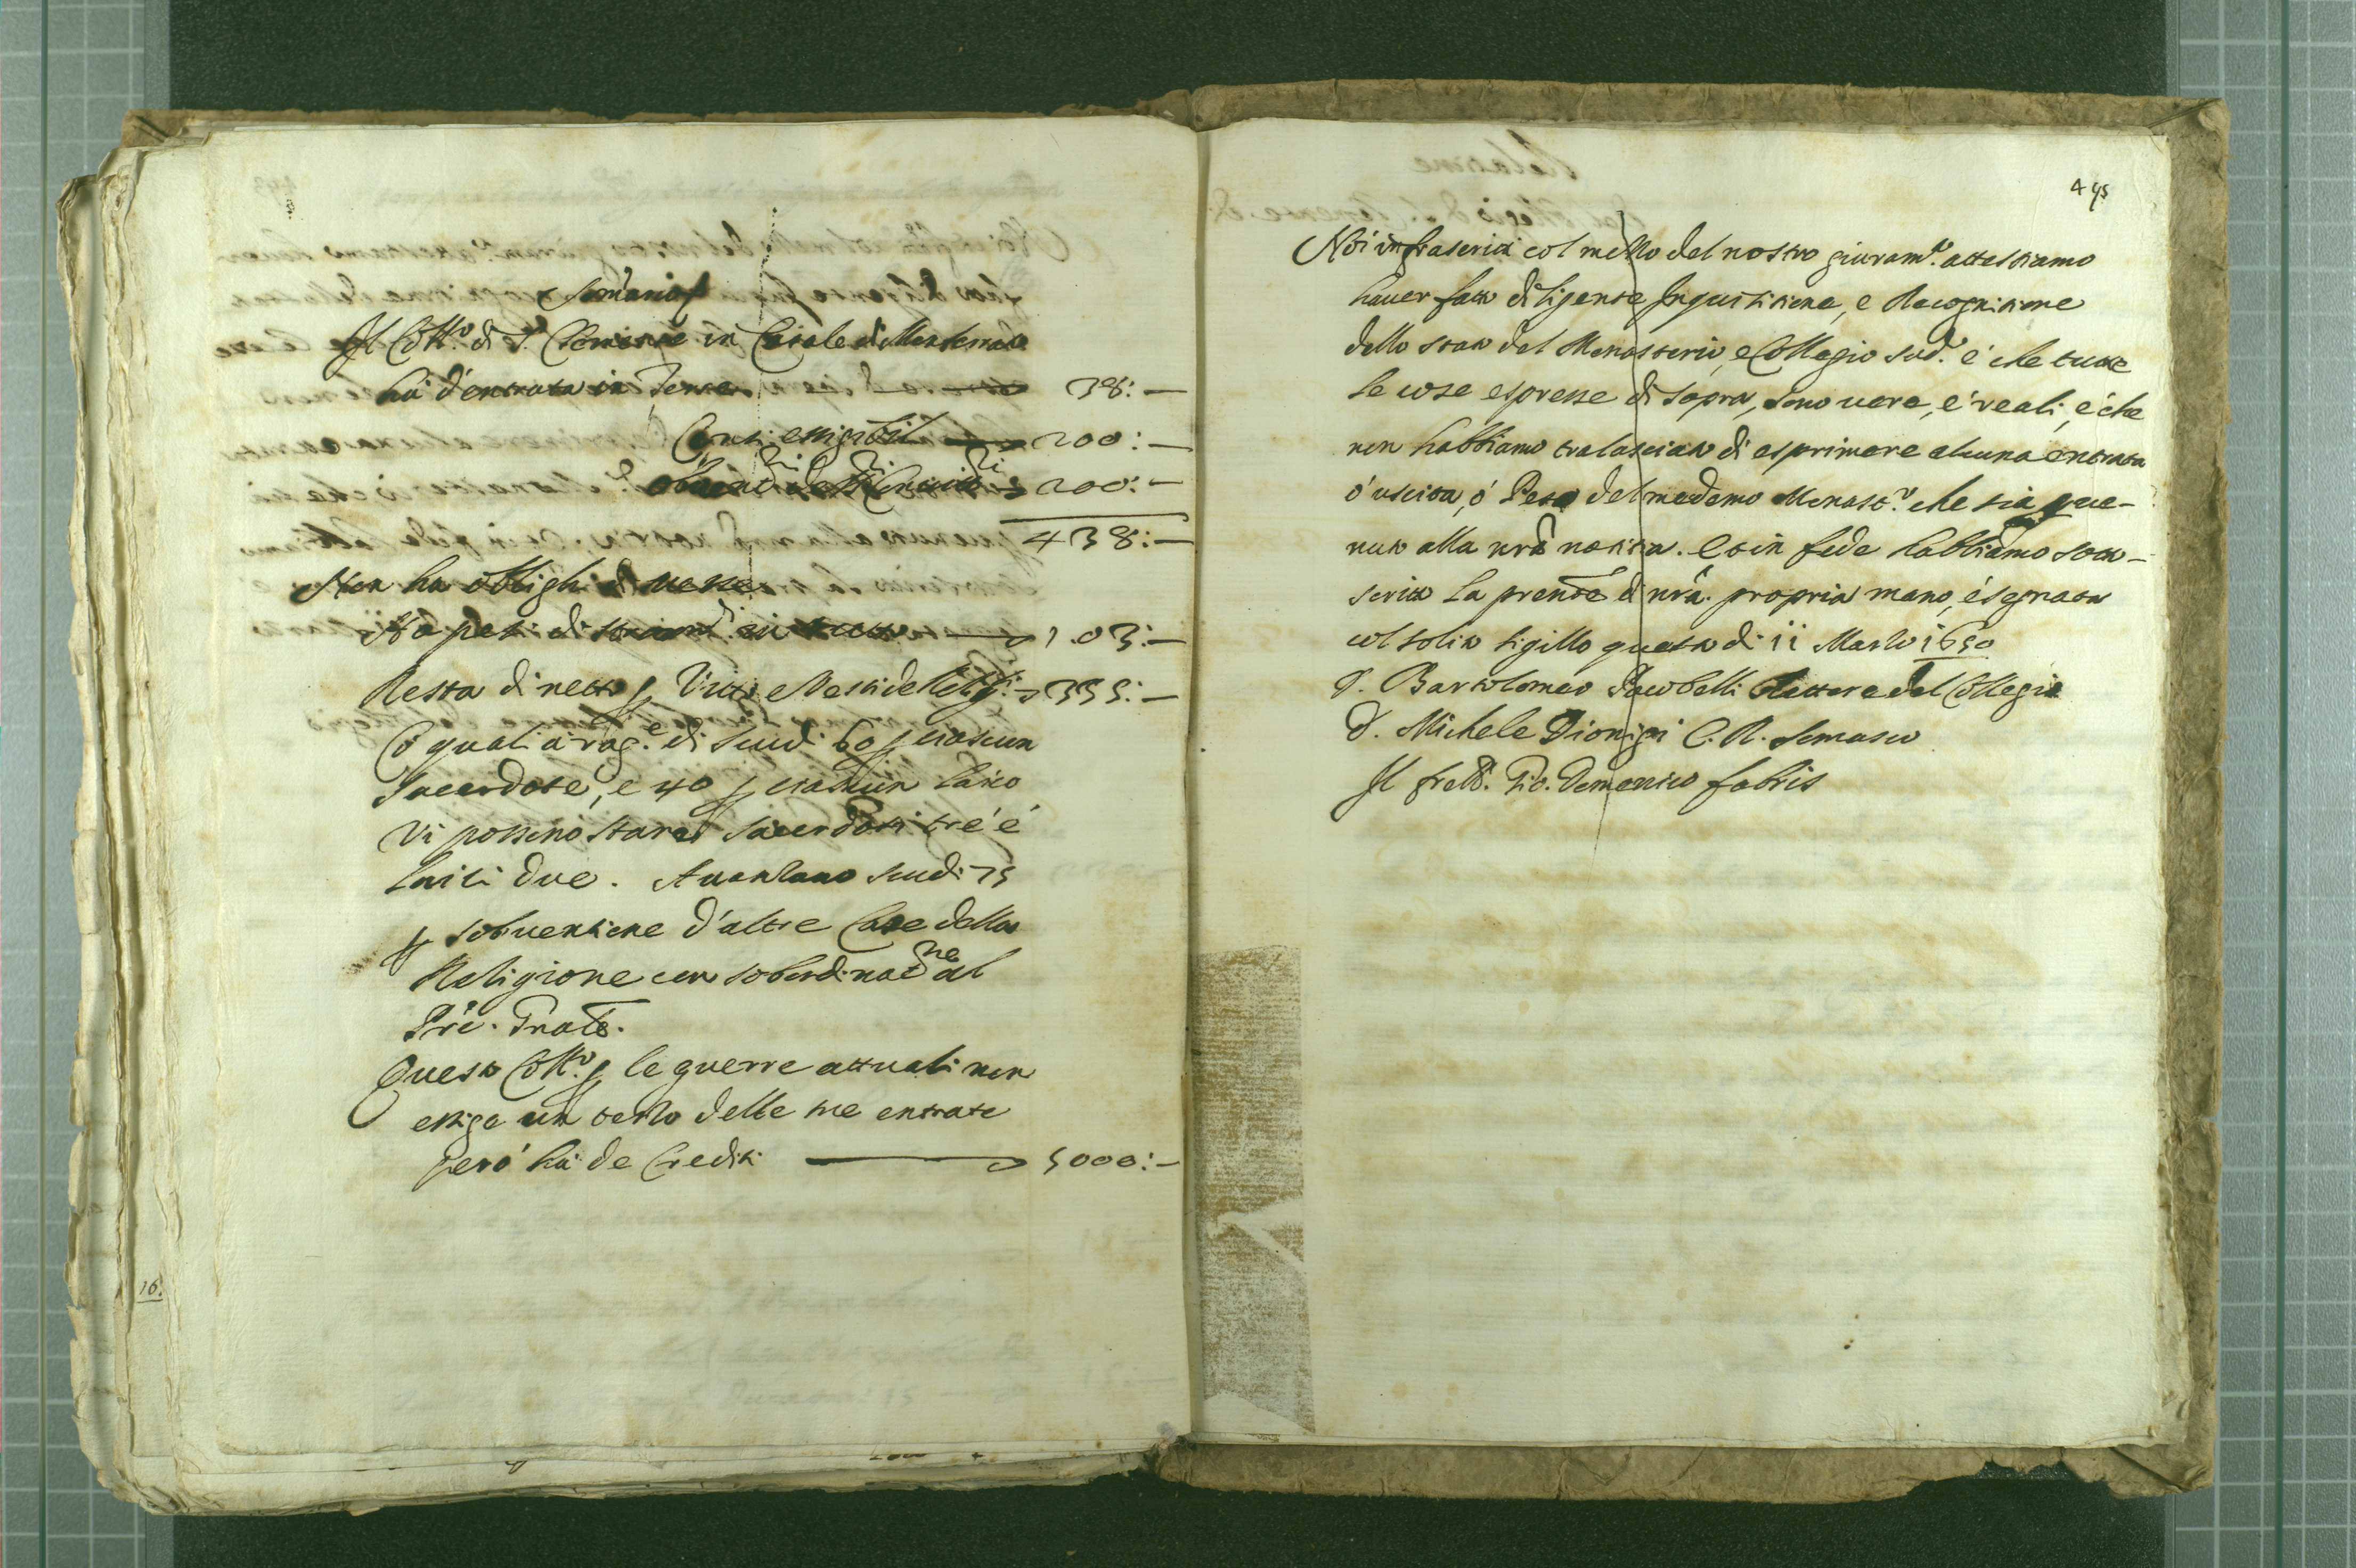 Som̃ario
Il Coll.º di S. Clemente in Casale di Monferrato
hà d'entrata in Terre 38:—
Censi essigibili 200:—
200:—
438:—
Non ha oblighi di messe
Ha pesi di in tutto 103:—
Resta di netto ꝑ Vitto e Vesti de Relig.i 335:—
Cõ quali à rag.e di scudi 60 ꝑ ciascun
Sacerdote, e 40 ꝑ ciascun laico
Vi possino stare Sacerdoti tré é
laici due. Avanzano scudi 75
ꝑ sobventione d'altre Case della
Religione con sobordinat.ne al
Pre. Gnale.
Questo Coll.º ꝑ le guerre attuali non
essige un terzo delle sue entrate
però hà de Crediti 5000:—
16.
495
Noi infrascritti col mezzo del nostro giuram.to attestiamo
haver fatto diligente Inquisitione, e Recognitione
dello stato del Monasterio, e Collegio sud.º é che tutte
le cose espresse di sopra, sono vere, é reali, é che
non habbiamo tralasciato di esprimere alcuna entrata
ó uscita, ó Peso del medemo Monast.º che sia perve-
nuto alla nrã notitia. Et in fede habbiamo sotto-
scritto la prẽnte di nrã propria mano, é segnata
col solito sigillo questo di 11 Marzo 1650
D. Bartolomeo Jacobelli Rettore del Collegio
D. Michele Dionigi C. R. Somasco
Il frell. Gio. Domenico fabris